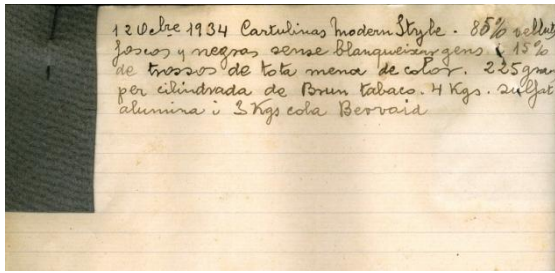 12 Ocbre 1934 Cartulinas Modern Style. 85% velluts
foscos y negras sense blanqueixar gens i 15%
de trossos de tota mena de color. 225 gra
per cilindrada de Brun tabaco. 4 Kgs. sulfat
alumina i 3 Kgs cola Bervaid